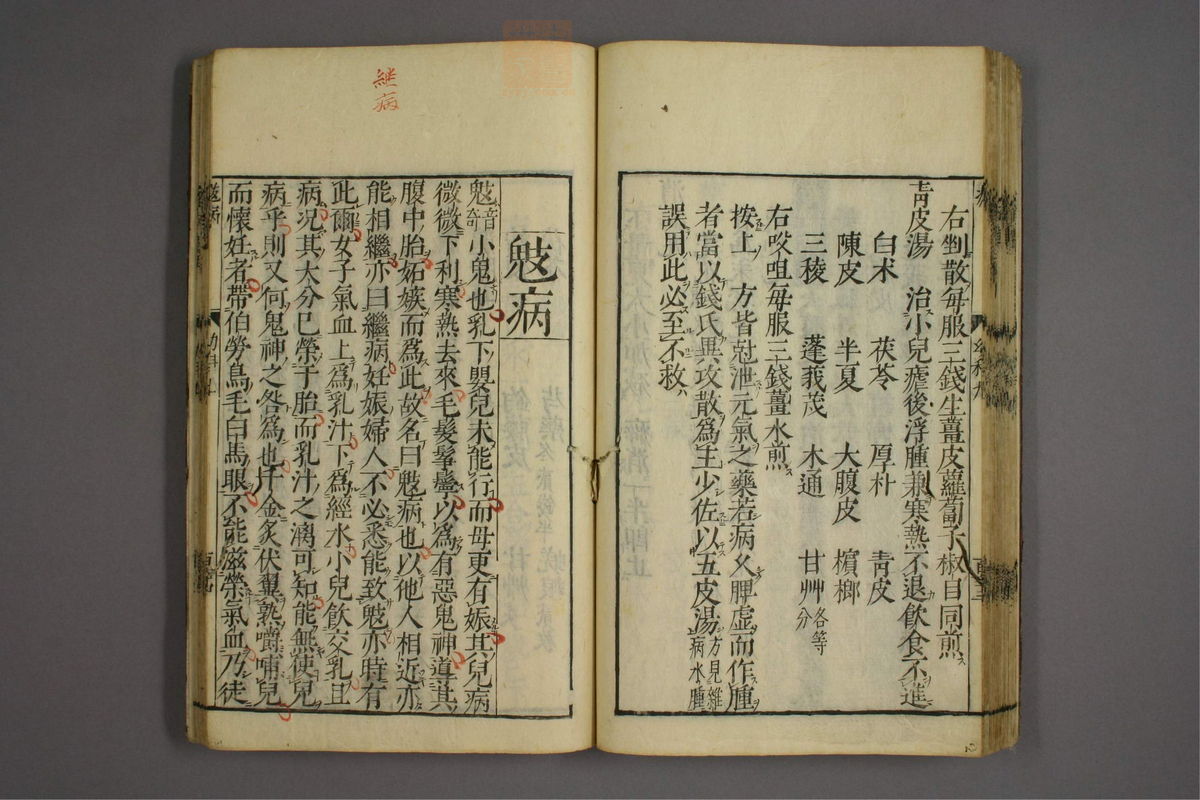 右剉散每服三錢生薑皮蘿蔔子椒目同煎
青皮湯 治小兒瘧後浮腫兼寒熱不退飲食不進
白朮 茯苓 厚朴 青皮
陳皮 半夏 大腹皮 檳榔
三稜 蓬莪茂 木通 甘艸各等分
右㕮咀每服三錢薑水煎
按上方皆尅泄元氣之藥若病久脾虛而作腫
者當以錢氏異攻散爲主少佐以五皮湯方見雜病水腫
誤用此必至不救
魃病
魃音奇小鬼也乳下嬰兒未能行而母更有娠其兒病
微微下利寒熱去來毛髮鬇鬡以爲有惡鬼神導其
腹中胎妬嫉而爲此故名曰魃病也以他人相近亦
能相繼亦曰繼病妊娠婦人不必悉能致魃亦時有
此爾女子氣血上爲乳汁下爲經水小兒飲交乳且
病况其大分已榮于胎而乳汁之漓可知能無使兒
病乎則又何鬼神之咎爲也千金炙伏翼熟嚼哺兒
而懷妊者帶伯勞鳥毛白馬眼不能滋榮氣血乃徒
継病
魃病